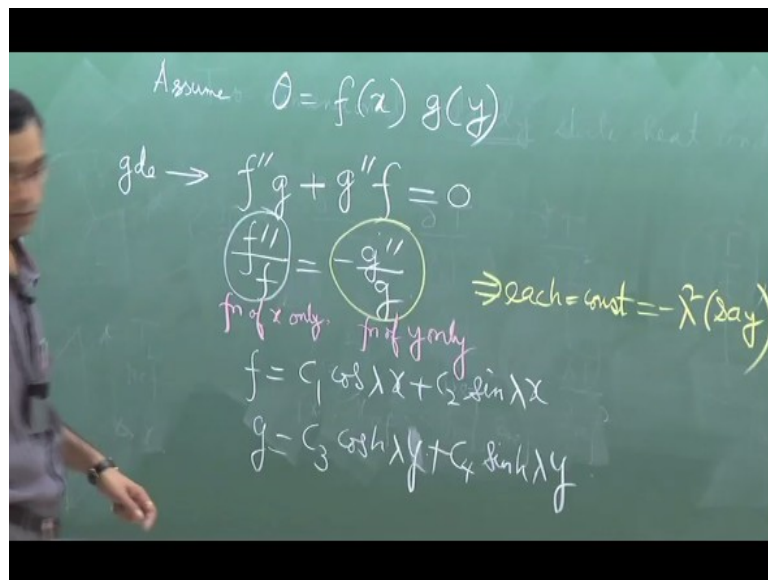 Assume θ = f(x) g(y)
gde → f″g + g″f = 0
f″/f = - g″/g ⇒ each = const = -λ² (say)
fn of x only. fn of y only
f = C₁ cos λx + C₂ sin λx
g = C₃ cosh λy + C₄ sinh λy